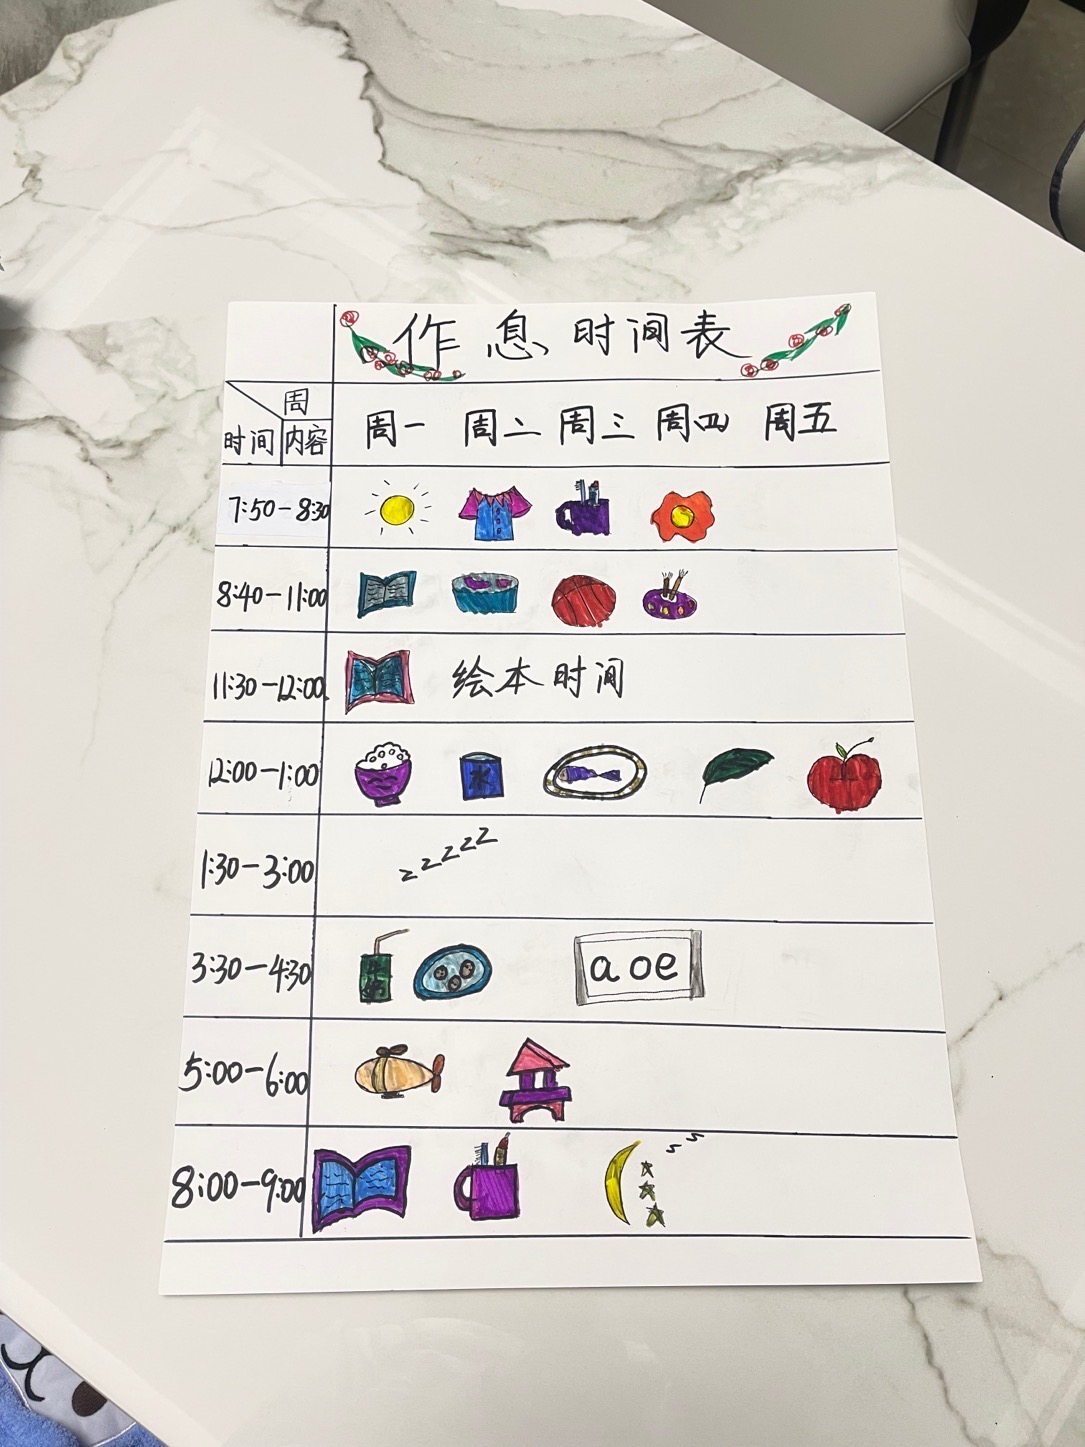 作息时间表
周
时间 内容 周一 周二 周三 周四 周五
7:50-8:30
8:40-11:00
11:30-12:00 绘本时间
12:00-1:00 水
1:30-3:00 zzzzz
3:30-4:30 a o e
5:00-6:00
8:00-9:00